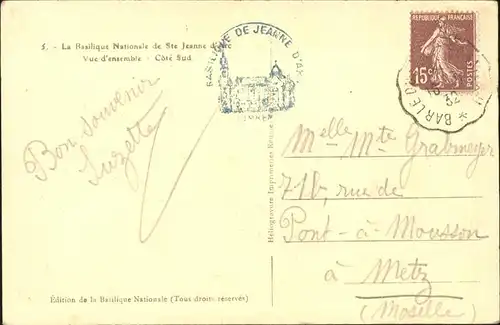 5. - La Basilique Nationale de Ste Jeanne d'Arc
Vue d'ensemble - Côté Sud
Bon souvenir
Suzette
BASILIQUE DE JEANNE D'ARC
REPUBLIQUE FRANÇAISE
15c
POSTES
BAR LE D
Melle Mte Grabmeyer
71b, rue de
Pont-à-Mousson
à Metz
(Moselle)
Héliogravure Imprimeries Réunies
Édition de la Basilique Nationale (Tous droits réservés)